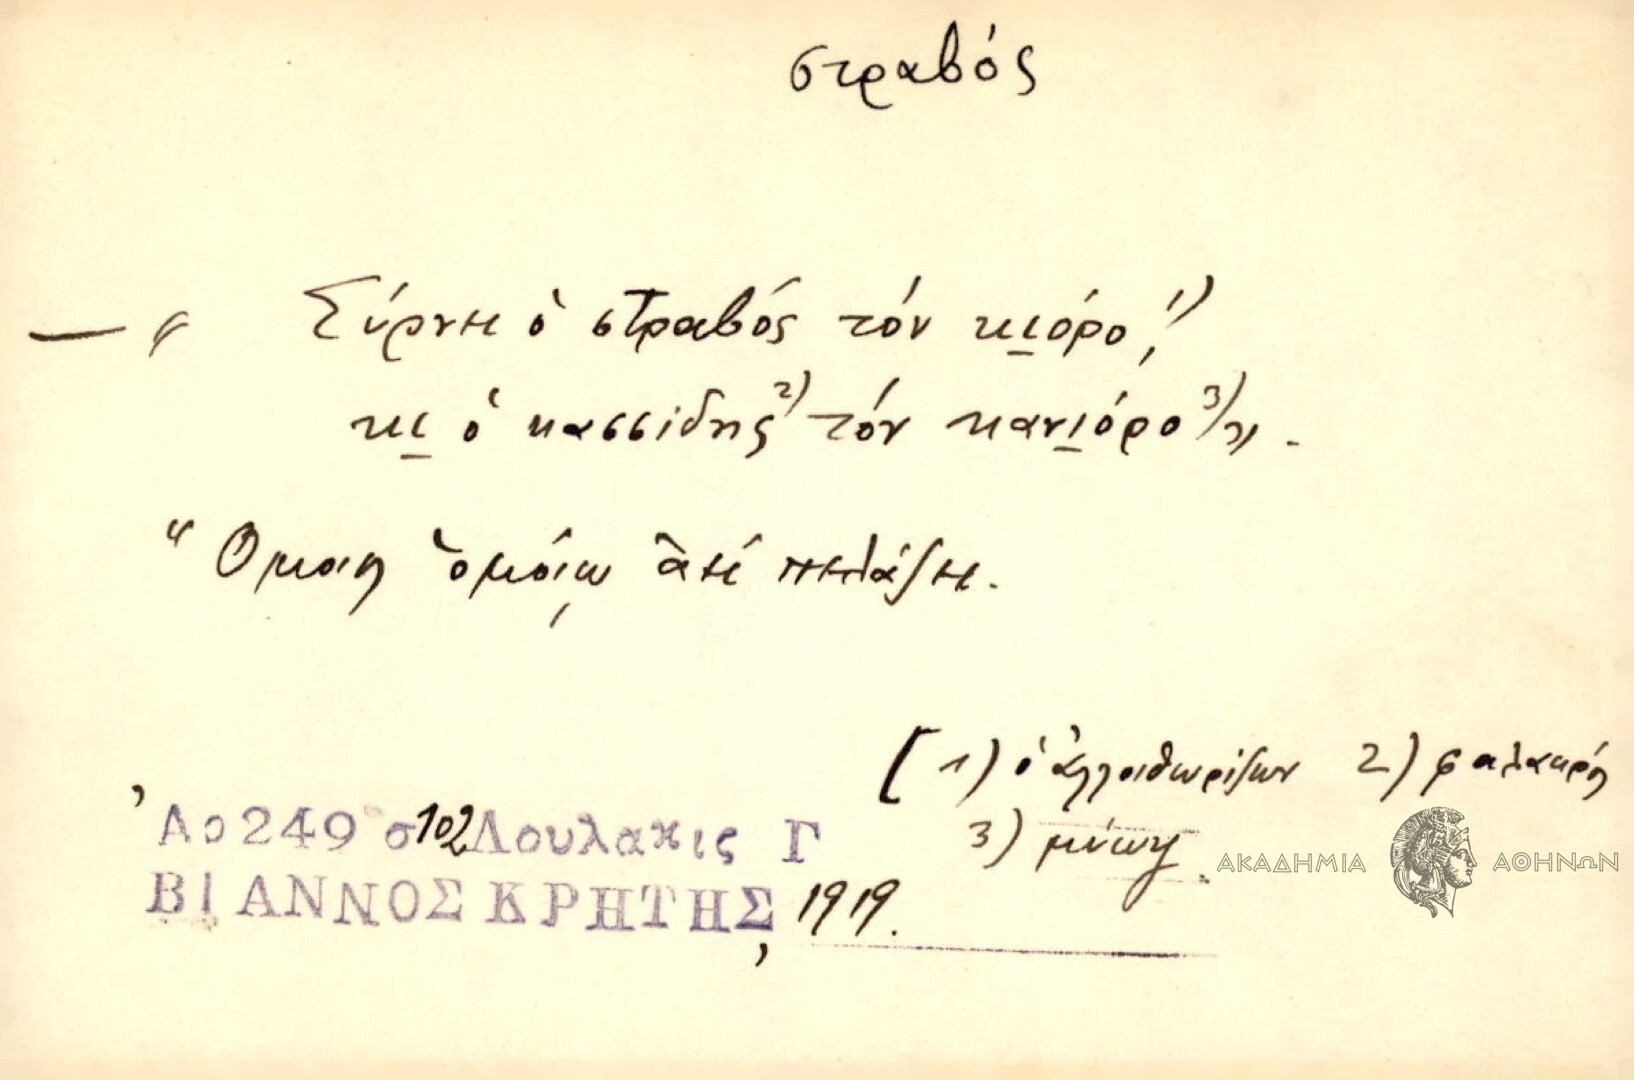 στραβός
— “ Σύρνει ὁ στραβός τόν κιόρο,¹)
κι ὁ κασσίδης²) τόν κανιόρο³)„.
“Ὅμοιος ὁμοίῳ ἀεί πελάζει.
[1) ὁ ἀλλοιθωρίζων 2) φαλακρός
Ἀρ 249 σ 102 Λουλακις Γ
3) μύωψ.
ΒΙΑΝΝΟΣ ΚΡΗΤΗΣ, 1919.
ΑΚΑΔΗΜΙΑ ΑΘΗΝΩΝ